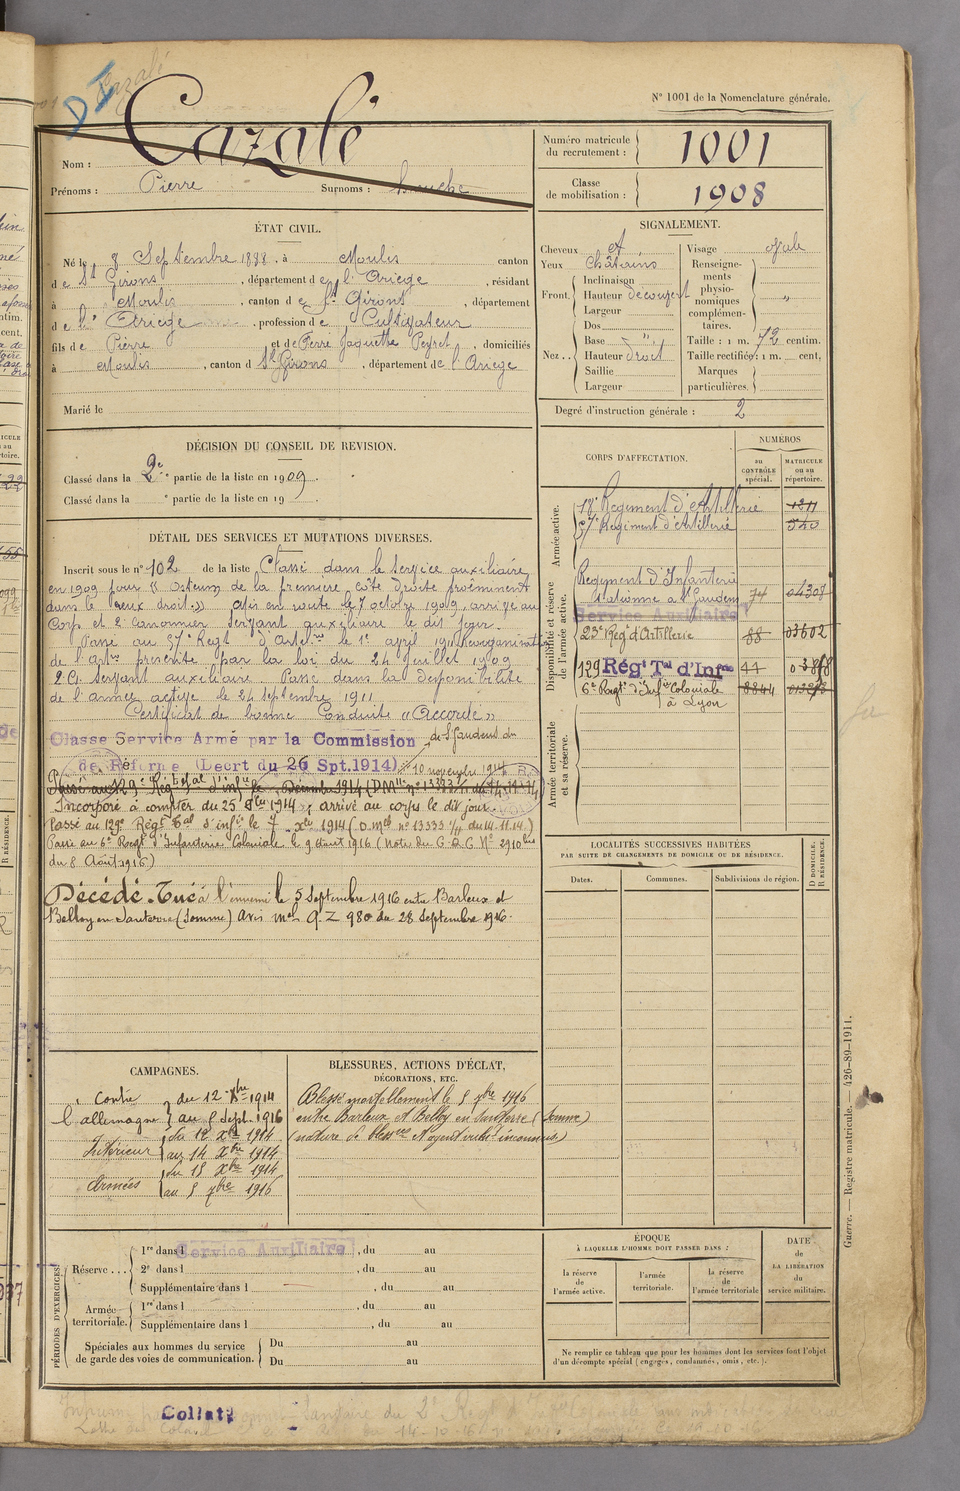 D I
Cazalé
N° 1001 de la Nomenclature générale.
Cazalé
Nom :
Prénoms : Pierre Surnoms :
Numéro matricule du recrutement : 1001
Classe de mobilisation : 1908
ÉTAT CIVIL.
Né le 8 Septembre 1888, à Moulis canton
de St Girons, département de l'Ariège, résidant
à Moulis, canton de St Girons, département
de l'Ariège, profession de Cultivateur
fils de Pierre et de Ferre Jaquette Peyret, domiciliés
à Moulis, canton d St Girons, département de l'Ariège
Marié le
SIGNALEMENT.
Cheveux et
Yeux châtains
Front. Inclinaison
Hauteur découvert
Largeur
Nez. . Dos
Base "
Hauteur droit
Saillie
Largeur
Visage ovale
Renseignements physionomiques complémentaires. "
Taille : 1 m. 72 centim.
Taille rectifiée : 1 m. cent.
Marques particulières.
Degré d'instruction générale : 2
DÉCISION DU CONSEIL DE REVISION.
Classé dans la 2e partie de la liste en 1909.
Classé dans la e partie de la liste en 19 .
DÉTAIL DES SERVICES ET MUTATIONS DIVERSES.
Inscrit sous le n° 102 de la liste Classé dans le service auxiliaire
en 1909 pour « Osteum de la première côte droite proéminent
dans le creux droit.» Mis en route le 7 octobre 1909, arrivé au
Corps et 2e Canonnier Servant auxiliaire le dit jour.
Passé au 57e Régt d'Artrie le 1er avril 1911 (Réorganisation
de l'Artrie prescrite par la loi du 24 Juillet 1909
2e C. Servant auxiliaire Passé dans la disponibilité
de l'armée active le 24 septembre 1911
Certificat de bonne Conduite « Accordé »
Classé Service Armé par la Commission de St Gaudens du
de Réforme (Decrt du 26 Spt. 1914) 10 novembre 1914
Passé au 129e Régt tal d'infie le Décembre 1914 (D Mlle n° 13333 1/11 du 14.11.14)
Incorporé à compter du 25 9bre 1914, arrivé au corps le dit jour
Passé au 129e Régt Tal d'infie le 7 Xbre 1914 (D. Mlle n° 13333 1/11 du 14.11.14.)
Passé au 6e Régt d'Infanterie Coloniale le 9 août 1916 (Note du G.Q.G. N° 2910 bis
du 8 Août 1916)
Décédé. Tué à l'ennemi le 5 Septembre 1916 entre Barleux et
Belloy en Santerre (Somme) Avis mel Q Z 980 du 28 Septembre 1916.
CORPS D'AFFECTATION.
NUMÉROS
au CONTRÔLE spécial.
MATRICULE ou au répertoire.
Armée active.
18e Régiment d'Artillerie 1211
57e Régiment d'Artillerie 540
Disponibilité et réserve de l'armée active.
Régiment d'Infanterie
Stationné à St Gaudens 74 04308
Service Auxiliaire
23e Régt d'Artillerie 88 03602
129 Régt Tal d'Infrie 44
6e Régt d'Infie Coloniale 8844
à Lyon
Armée territoriale et sa réserve.
LOCALITÉS SUCCESSIVES HABITÉES
PAR SUITE DE CHANGEMENTS DE DOMICILE OU DE RÉSIDENCE.
Dates. Communes. Subdivisions de région. D DOMICILE. R RÉSIDENCE.
CAMPAGNES.
Contre l'allemagne du 12 Xbre 1914
au 5 Sept. 1916
Intérieur du 12 Xbre 1914
au 14 Xbre 1914
Armées du 15 Xbre 1914
au 5 7bre 1916
BLESSURES, ACTIONS D'ÉCLAT,
DÉCORATIONS, ETC.
Blessé mortellement le 5 7bre 1916
entre Barleux et Belloy en Santerre (Somme)
(nature de blessres et agent vulnt inconnus)
PÉRIODES D'EXERCICES
Réserve . . . 1re dans l Service Auxiliaire, du au
2e dans l , du au
Supplémentaire dans l , du au
Armée territoriale. 1re dans l
Supplémentaire dans l , du au
Spéciales aux hommes du service de garde des voies de communication. Du au
Du au
ÉPOQUE
À LAQUELLE L'HOMME DOIT PASSER DANS :
la réserve de l'armée active.
l'armée territoriale.
la réserve de l'armée territoriale
DATE de LA LIBÉRATION du service militaire.
Ne remplir ce tableau que pour les hommes dont les services font l'objet
d'un décompte spécial (engagés, condamnés, omis, etc.).
Guerre. — Registre matricule. — 426-89-1911.
Collat